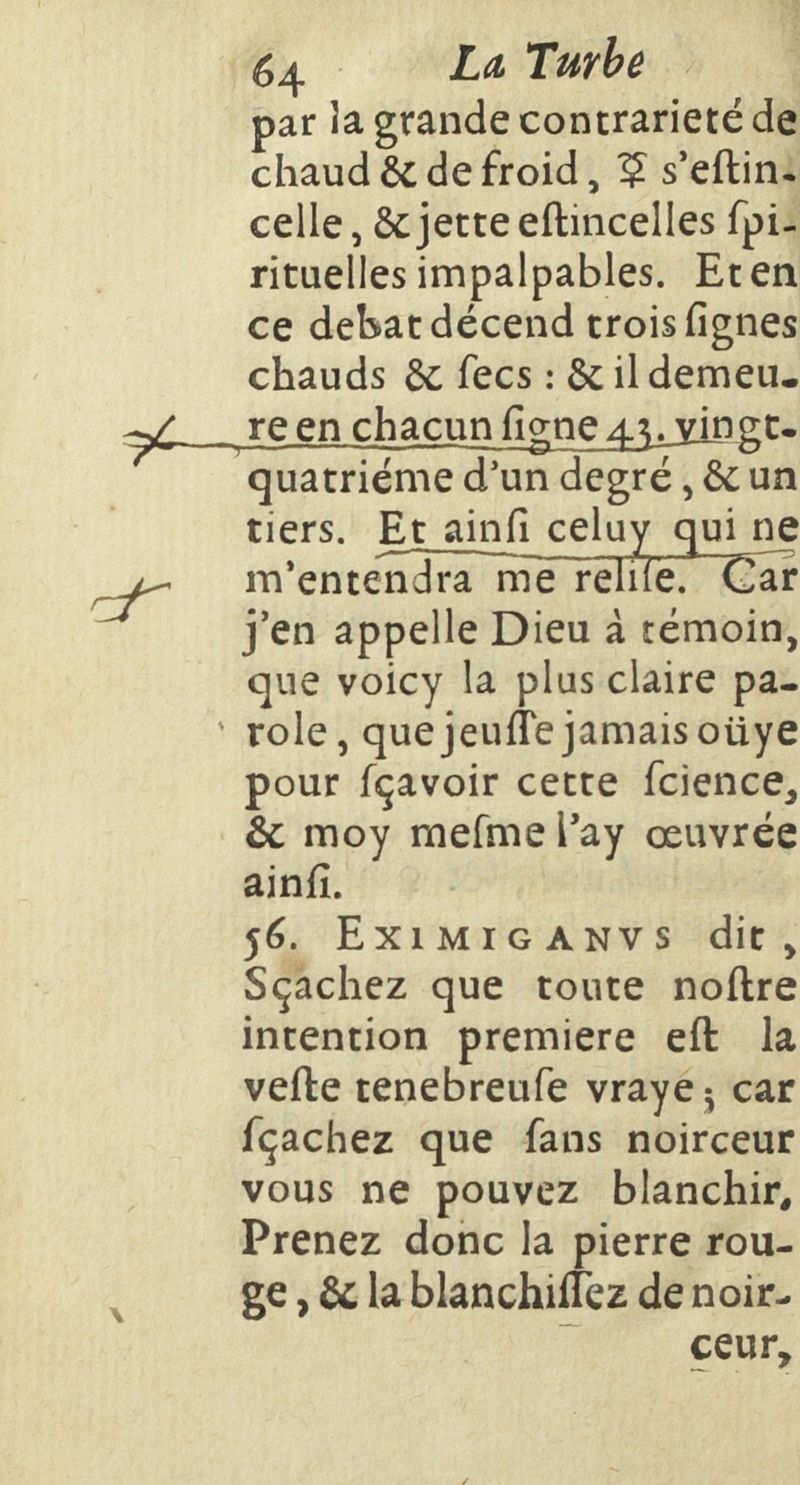 64 La Turbe
par la grande contrarieté de
chaud & de froid, ☿ s'eſtin-
celle, & jette eſtincelles ſpi-
rituelles impalpables. Et en
ce debat décend trois ſignes
chauds & ſecs : & il demeu-
re en chacun ſigne 43. vingt-
quatriéme d'un degré, & un
tiers. Et ainſi celuy qui ne
m'entendra me reliſe. Car
j'en appelle Dieu à témoin,
que voicy la plus claire pa-
role, que jeuſſe jamais oüye
pour ſçavoir cette ſcience,
& moy meſme l'ay œuvrée
ainſi.
56. EXIMIGANVS dit,
Sçachez que toute noſtre
intention premiere eſt la
veſte tenebreuſe vraye; car
ſçachez que ſans noirceur
vous ne pouvez blanchir.
Prenez donc la pierre rou-
ge, & la blanchiſſez de noir-
ceur,